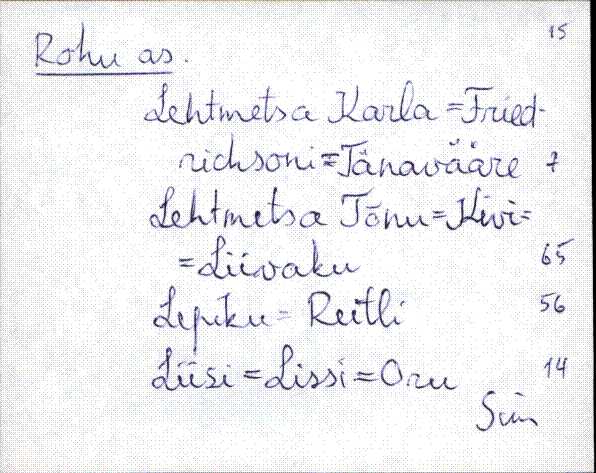 15
Rohu as.
Lehtmetsa Karla = Fried-
richsoni = Tänavääre 7
Lehtmetsa Tõnu = Kivi =
= Liivaku 65
Lepiku = Reitli 56
Liisi = Lissi = Oru 14